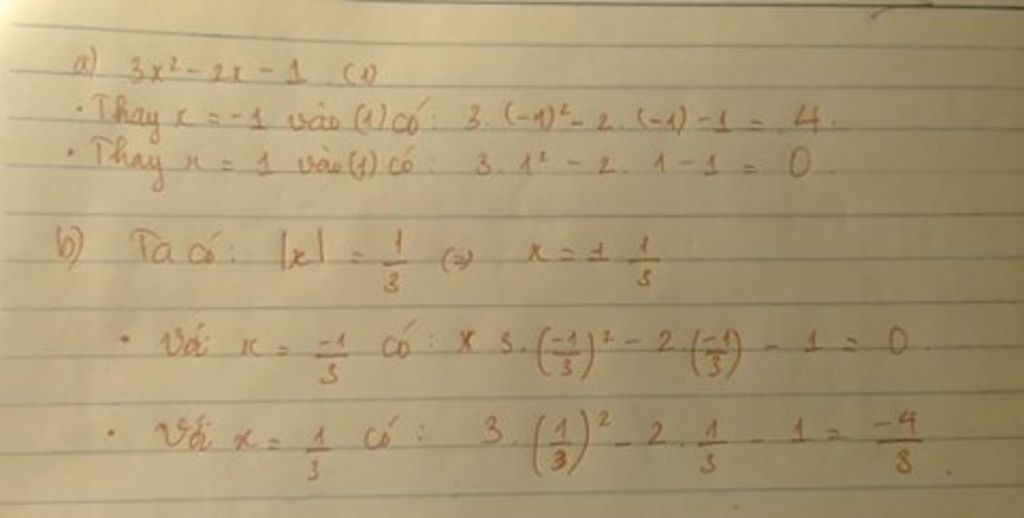 a) 3x² - 2x - 1 (1)
• Thay x = -1 vào (1) có: 3. (-1)² - 2. (-1) - 1 = 4.
• Thay x = 1 vào (1) có: 3. 1² - 2. 1 - 1 = 0.
b) Ta có: |x| = 1/3 <=> x = ± 1/3
• Với x = -1/3 có: x 3. (-1/3)² - 2. (-1/3) - 1 = 0.
• Với x = 1/3 có: 3. (1/3)² - 2. 1/3 - 1 = -4/3.